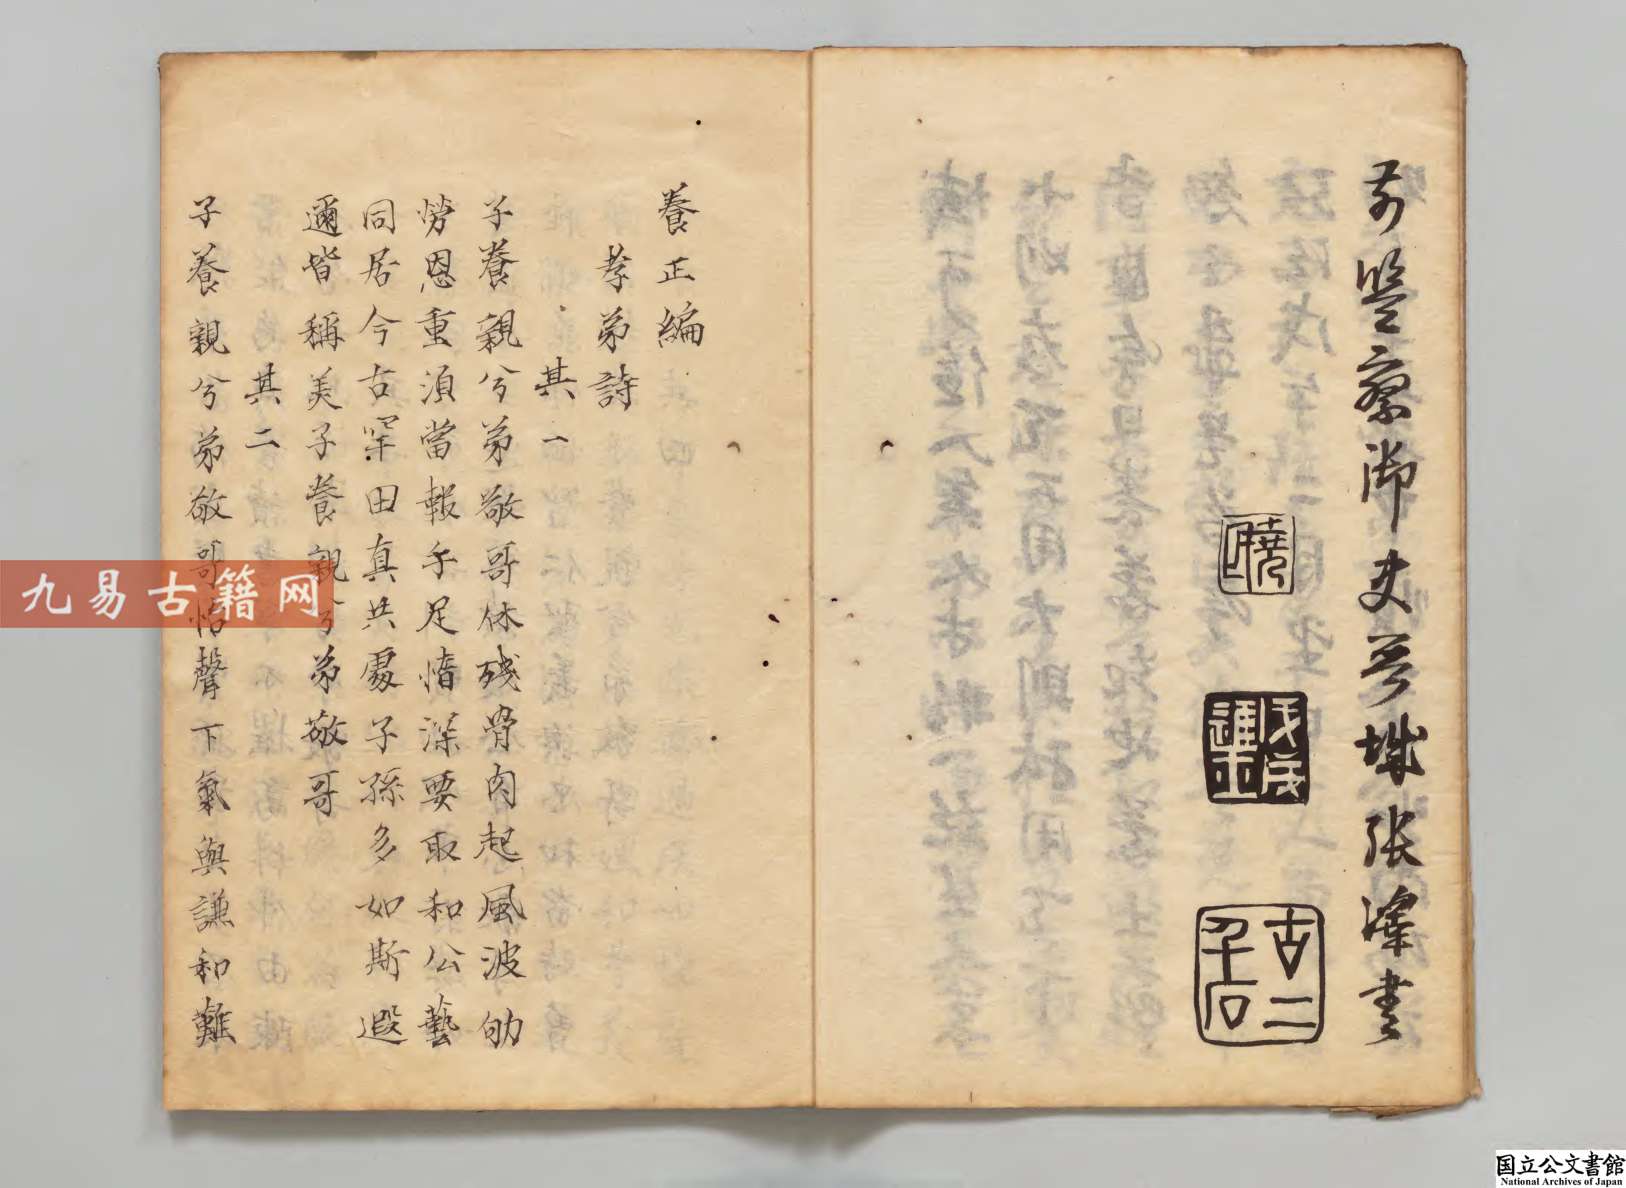 前監察御史芸城張濂書
曉
民
進士
古二
千石
養正編
孝弟詩
其一
子養親兮弟敬哥休殘骨肉起風波劬
勞恩重須當報手足情深要取和公藝
同居今古罕田真共處子孫多如斯遐
邇皆稱美子養親兮弟敬哥
其二
子養親兮弟敬哥怡聲下氣與謙和難
九易古籍网
国立公文書館
National Archives of Japan